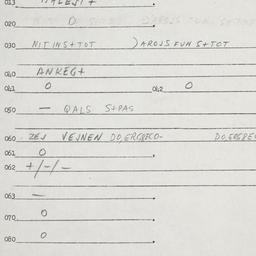 013
020 0
030 NITINS+TOT )AROJS FUN S+TOT
040 ANKEG+
041 0 042 0
050 — QALS S+PAS
060 ZEJ VEJNEN
061 0
062 +/-/-
063 —
070 0
080 0